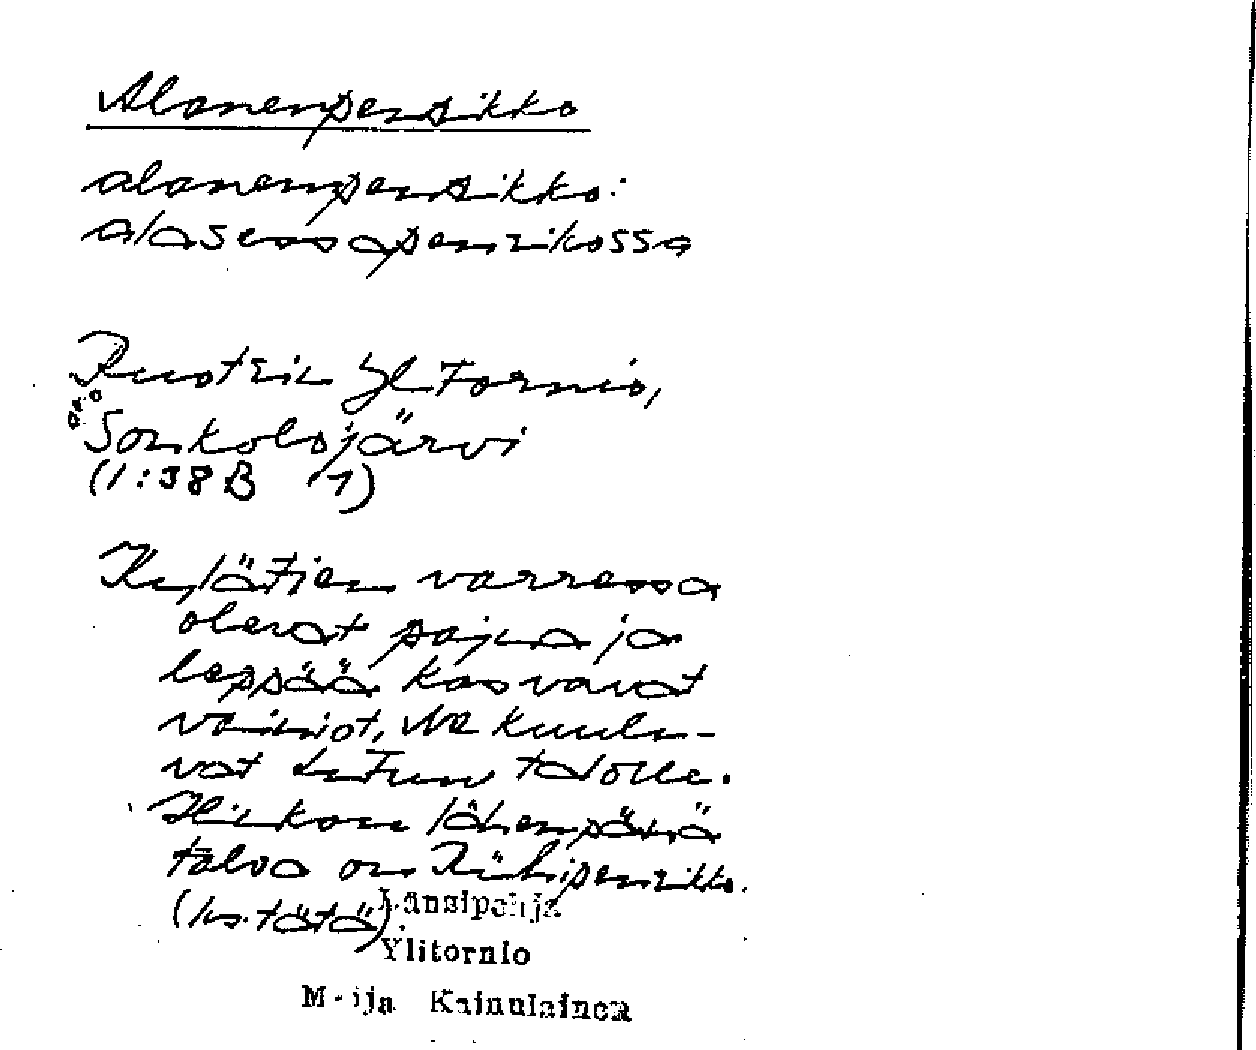 Alanenpensikko
alanenpensikko:
alasessapensikossa
Ruotsin Yl Tornio,
Sonkolojärvi
(1:38 B 1)
Kylätien varressa
olevat pajua ja
leppää kasvavat
vainiot, Ne kuulu-
vat talolle.
Hiukan lähempänä
taloa on
(ks. tätä)
Länsipohja
Ylitornio
Maija Kainulainen